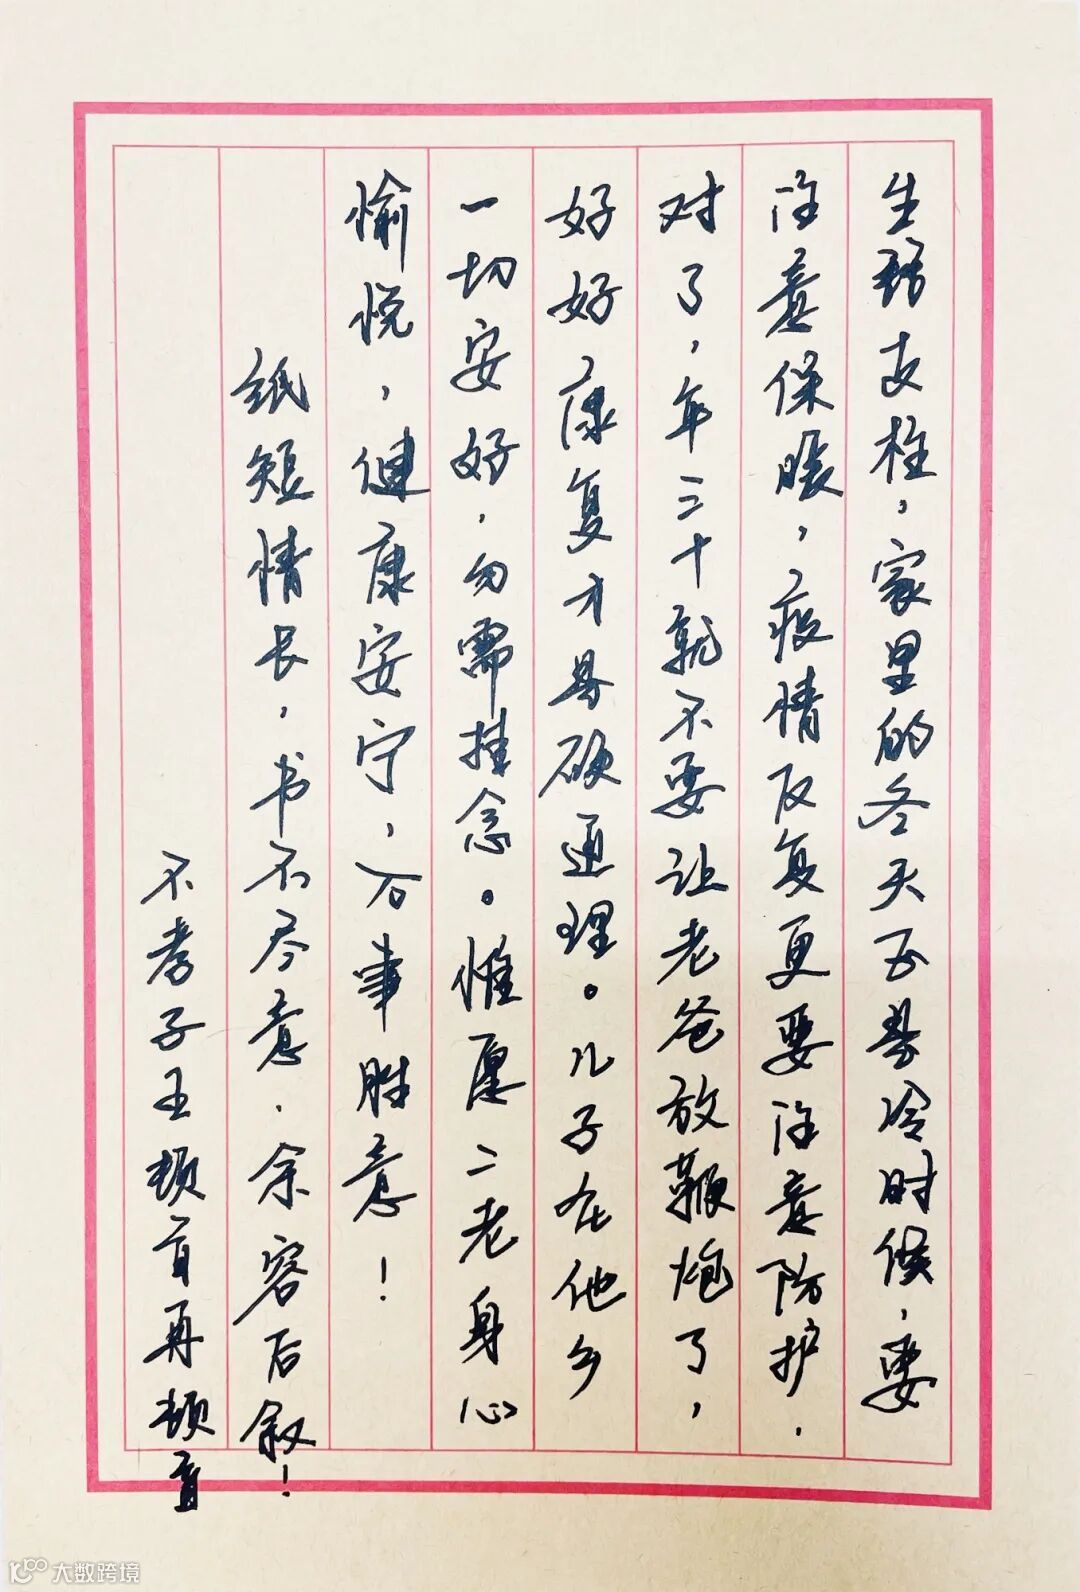 生的支柱，家里的冬天正是冷时候，要
注意保暖，疫情反复更要注意防护．
对了，年三十就不要让老爸放鞭炮了，
好好康复才是硬道理。儿子在他乡
一切安好，勿需挂念。惟愿二老身心
愉悦，健康安宁，万事胜意！
纸短情长，书不尽意．余容后叙！
不孝子王顿首再顿首
大数跨境